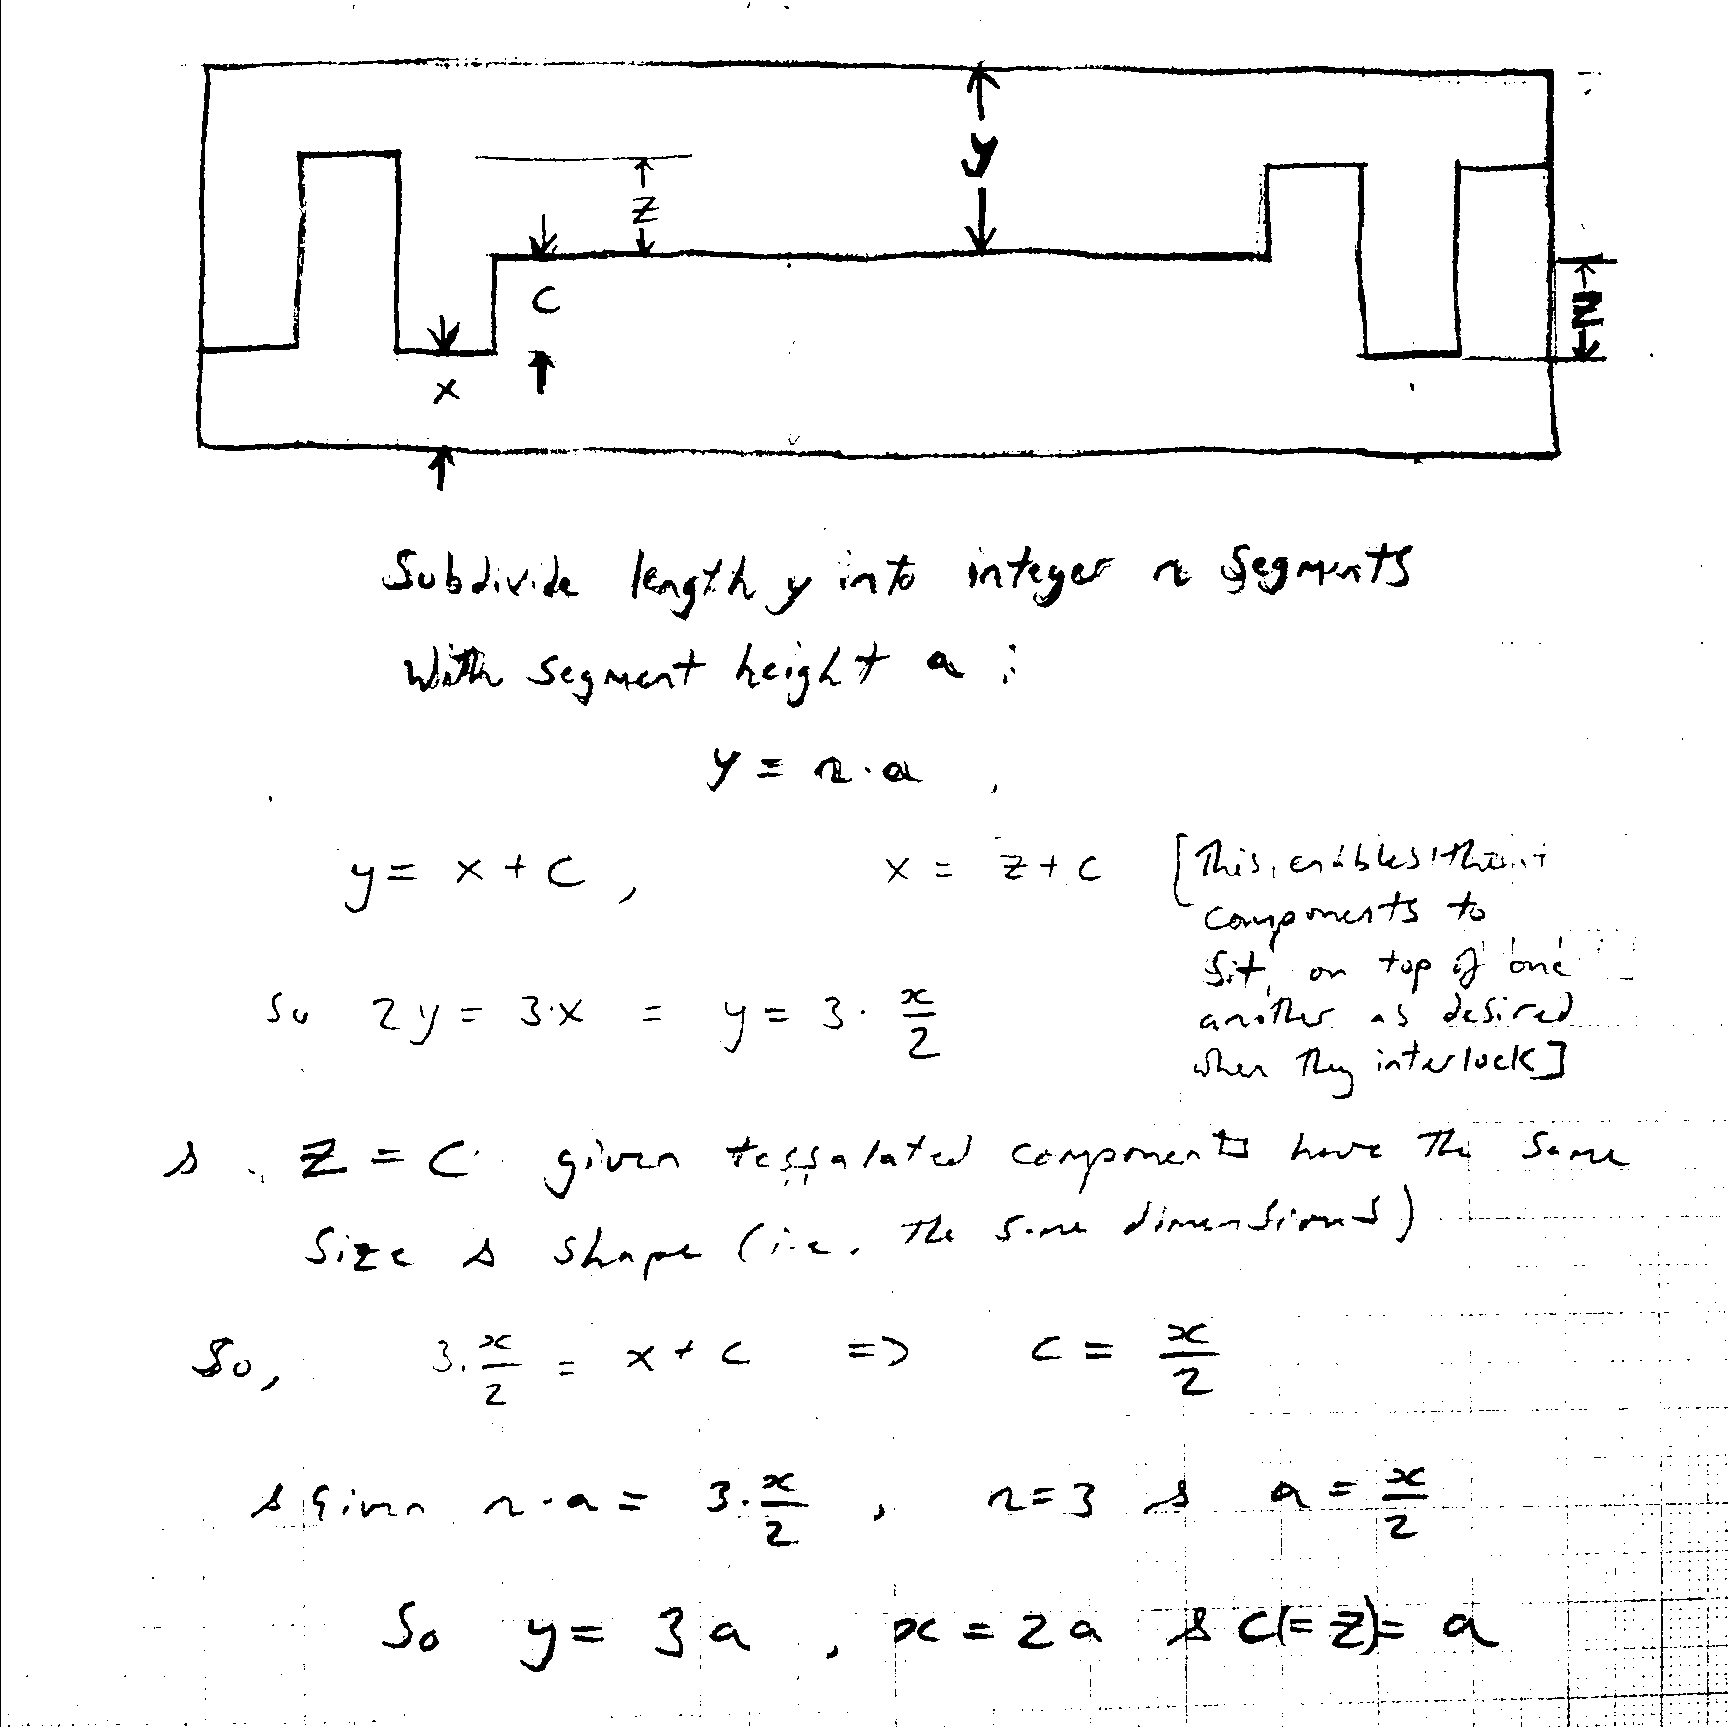 y
z
c
z
x
Subdivide length y into integer n segments
with segment height a :
y = n·a
y = x + c , x = z + c [This enables
components to
sit on top of one
another as desired
when they interlock]
So 2y = 3·x = y = 3· x/2
& z = c given tessalated components have the same
size & shape (i.e. the same dimensions)
So, 3· x/2 = x + c => c = x/2
& Given n·a = 3· x/2 , n=3 & a = x/2
So y = 3a , x = 2a & c(=z)= a